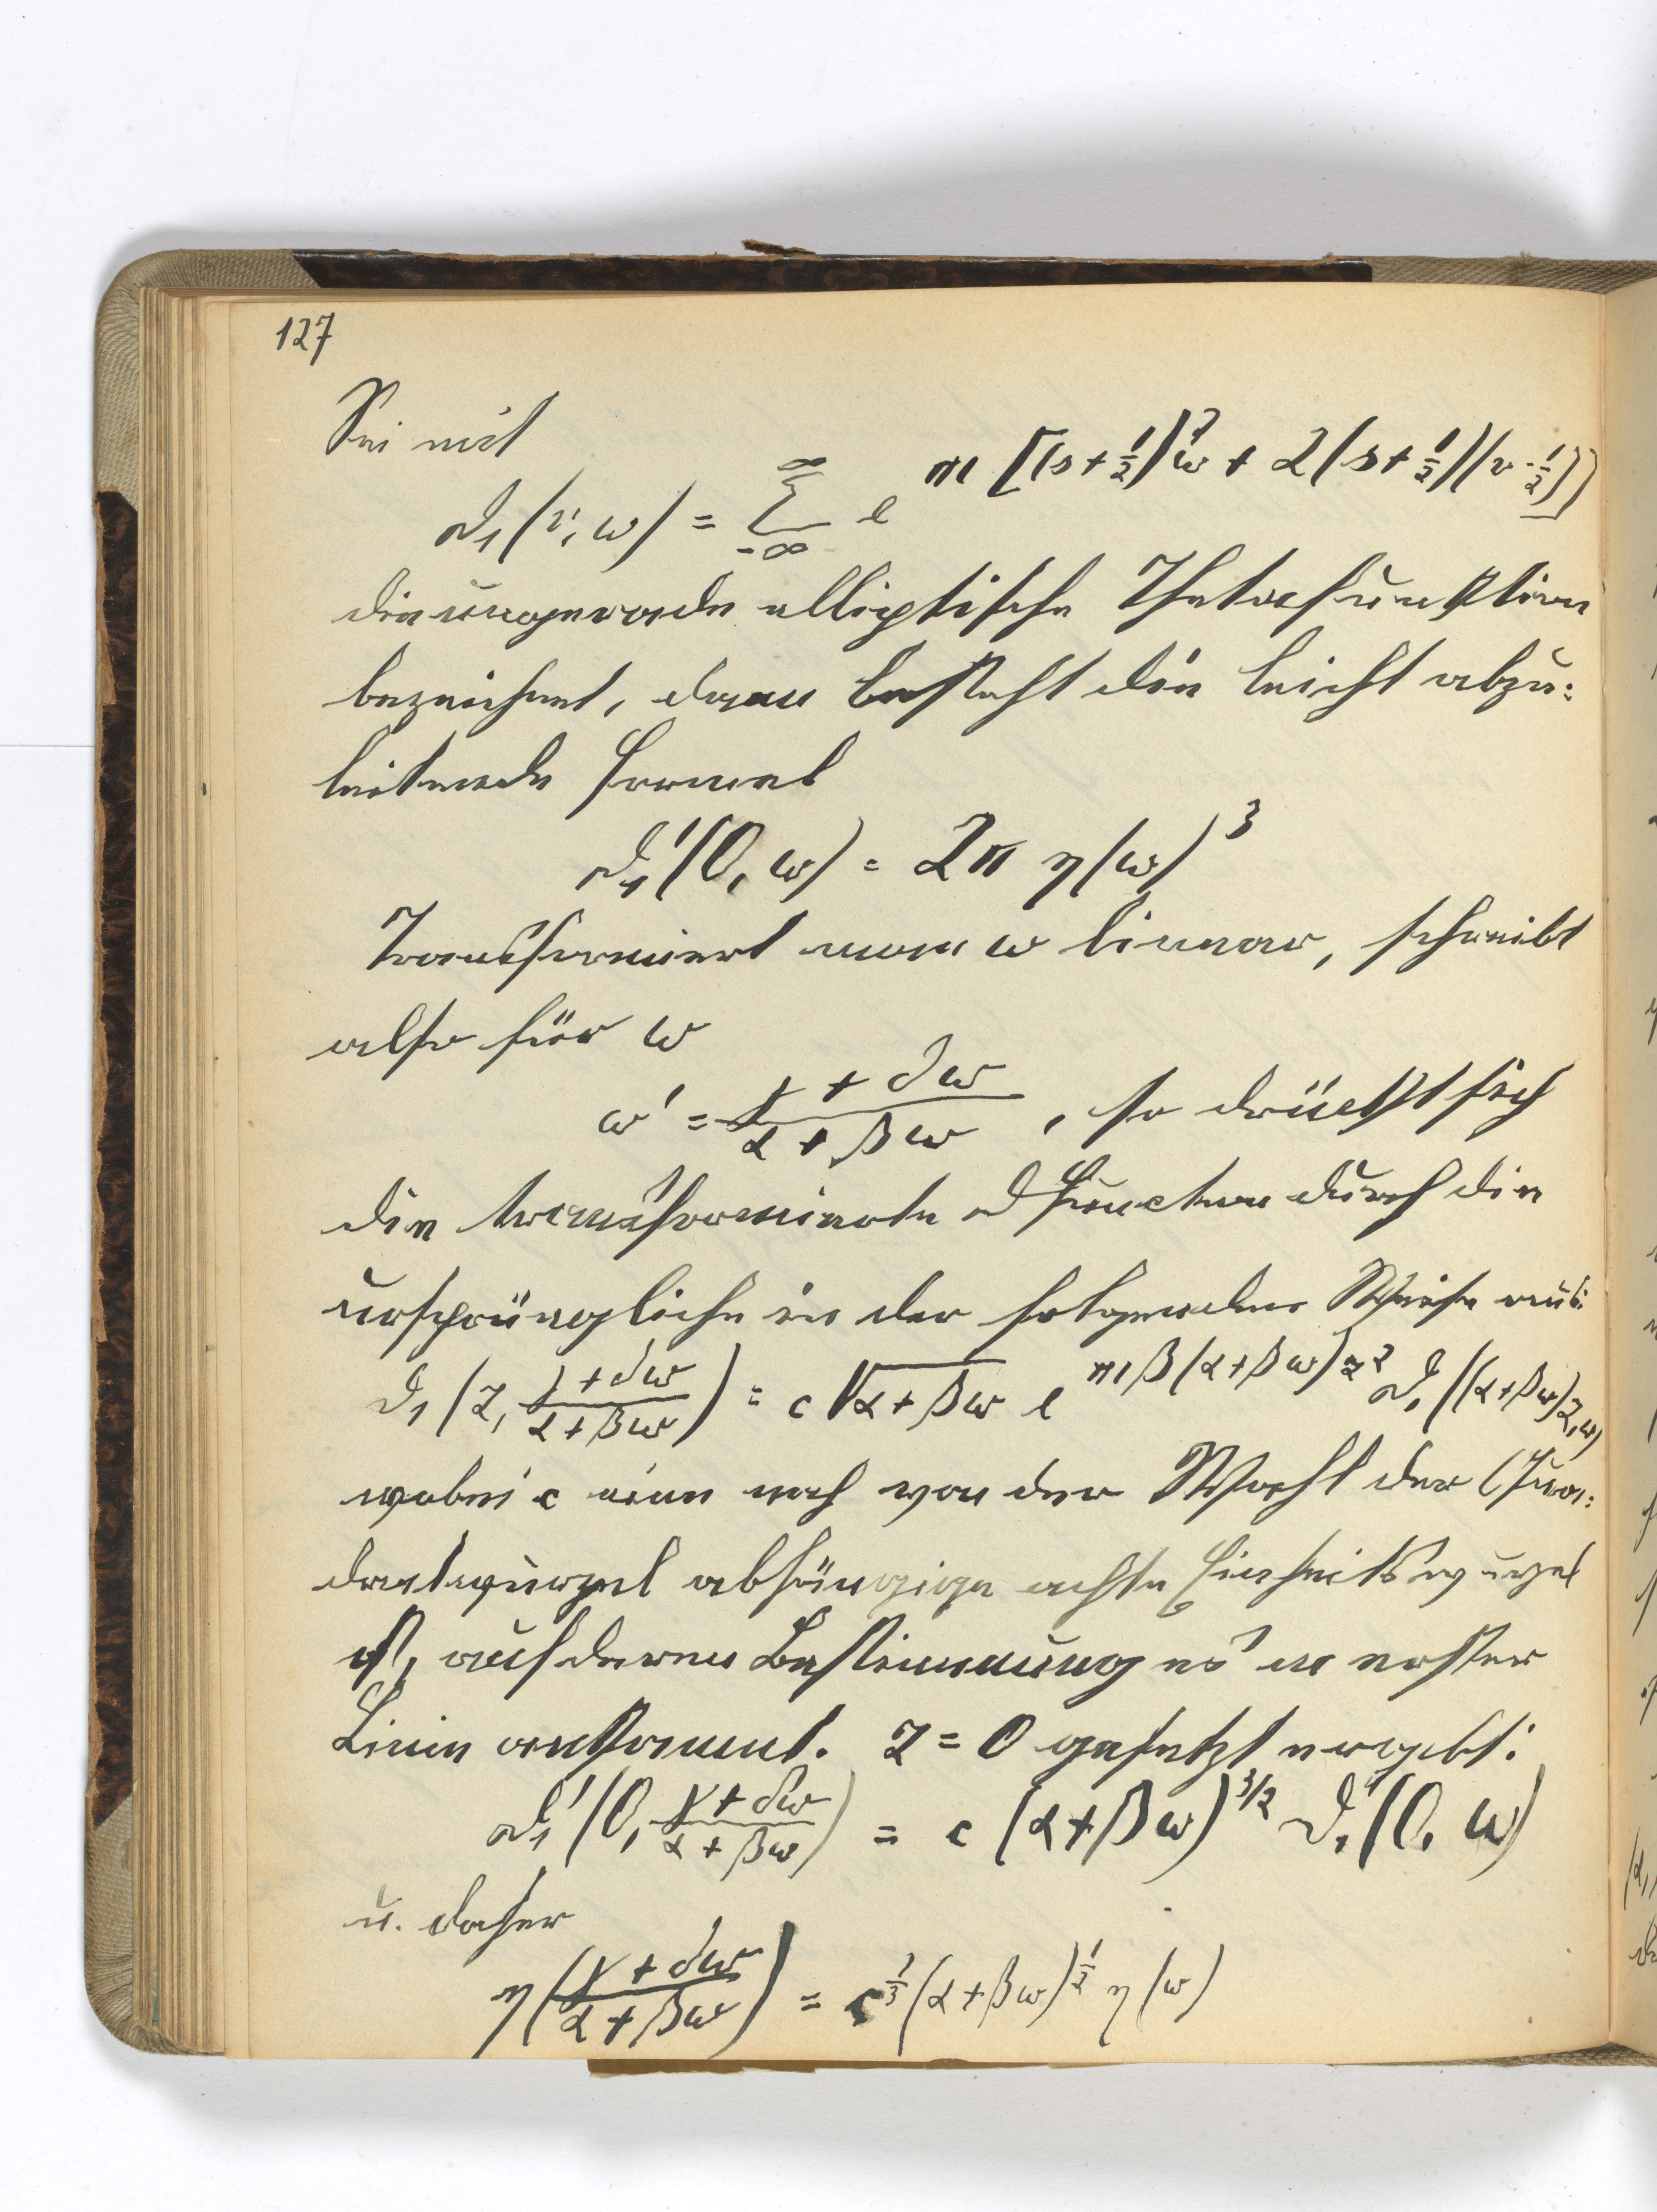 127
Sei mit
ϑ₁(v, ω) = ∑_{-∞}^{∞} e^{πi[(s+½)²ω + 2(s+½)(v-½)]}
die ungerade elliptische Thetafunktion
bezeichnet, dann besteht die leicht abzu:
leitende Formel
ϑ₁'(0, ω) = 2π η(ω)³
Transformiert man ω linear, schreibt
also für ω
ω' = (γ + δω)/(α + βω), so drückt sich
die transformierte ϑ Function durch die
ursprüngliche in der folgenden Weise aus:
ϑ₁(z, (γ+δω)/(α+βω)) = c √(α+βω) e^{πiβ(α+βω)z²} ϑ₁((α+βω)z, ω)
wobei c eine noch von der Wahl der Qua:
dratwurzel abhängige achte Einheitswurzel
ist, auf deren Bestimmung es in erster
Linie ankommt. z = 0 gesetzt ergibt:
ϑ₁'(0, (γ+δω)/(α+βω)) = c (α+βω)^{3/2} ϑ₁'(0, ω)
u. daher
η((γ+δω)/(α+βω)) = c^{1/3} (α+βω)^{1/2} η(ω)